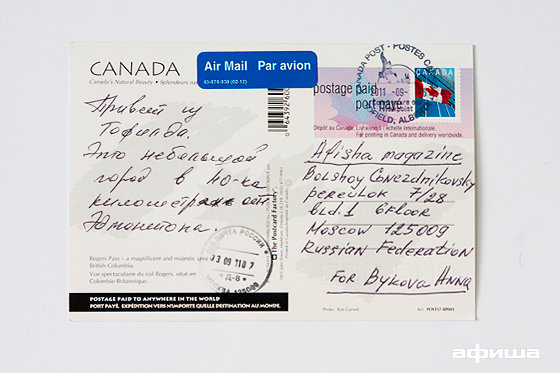 CANADA
Canada's Natural Beauty • Splendeurs
Air Mail Par avion
Привет из
Тофилда.
Это небольшой
город в 40-ка
километрах от
Эдмонтона.
Rogers Pass – a magnificent and majestic area
British Columbia.
Vue spectaculaire du col Rogers, situé en
Colombie-Britannique.
POSTAGE PAID TO ANYWHERE IN THE WORLD
PORT PAYÉ. EXPÉDITION VERS N'IMPORTE QUELLE DESTINATION AU MONDE.
The Postcard Factory
ПОЧТА РОССИИ
Д-8
125009
CANADA POST - POSTES CANADA
postage paid
port payé
CANADA
Dépôt au Canada. Livraison à l'échelle internationale.
For posting in Canada and delivery worldwide.
Afisha magazine
Bolshoy Gnezdnikovsky
pereulok 7/28
bld.1 6floor
Moscow 125009
Russian Federation
FOR Bykova Anna
Photo:
афиша